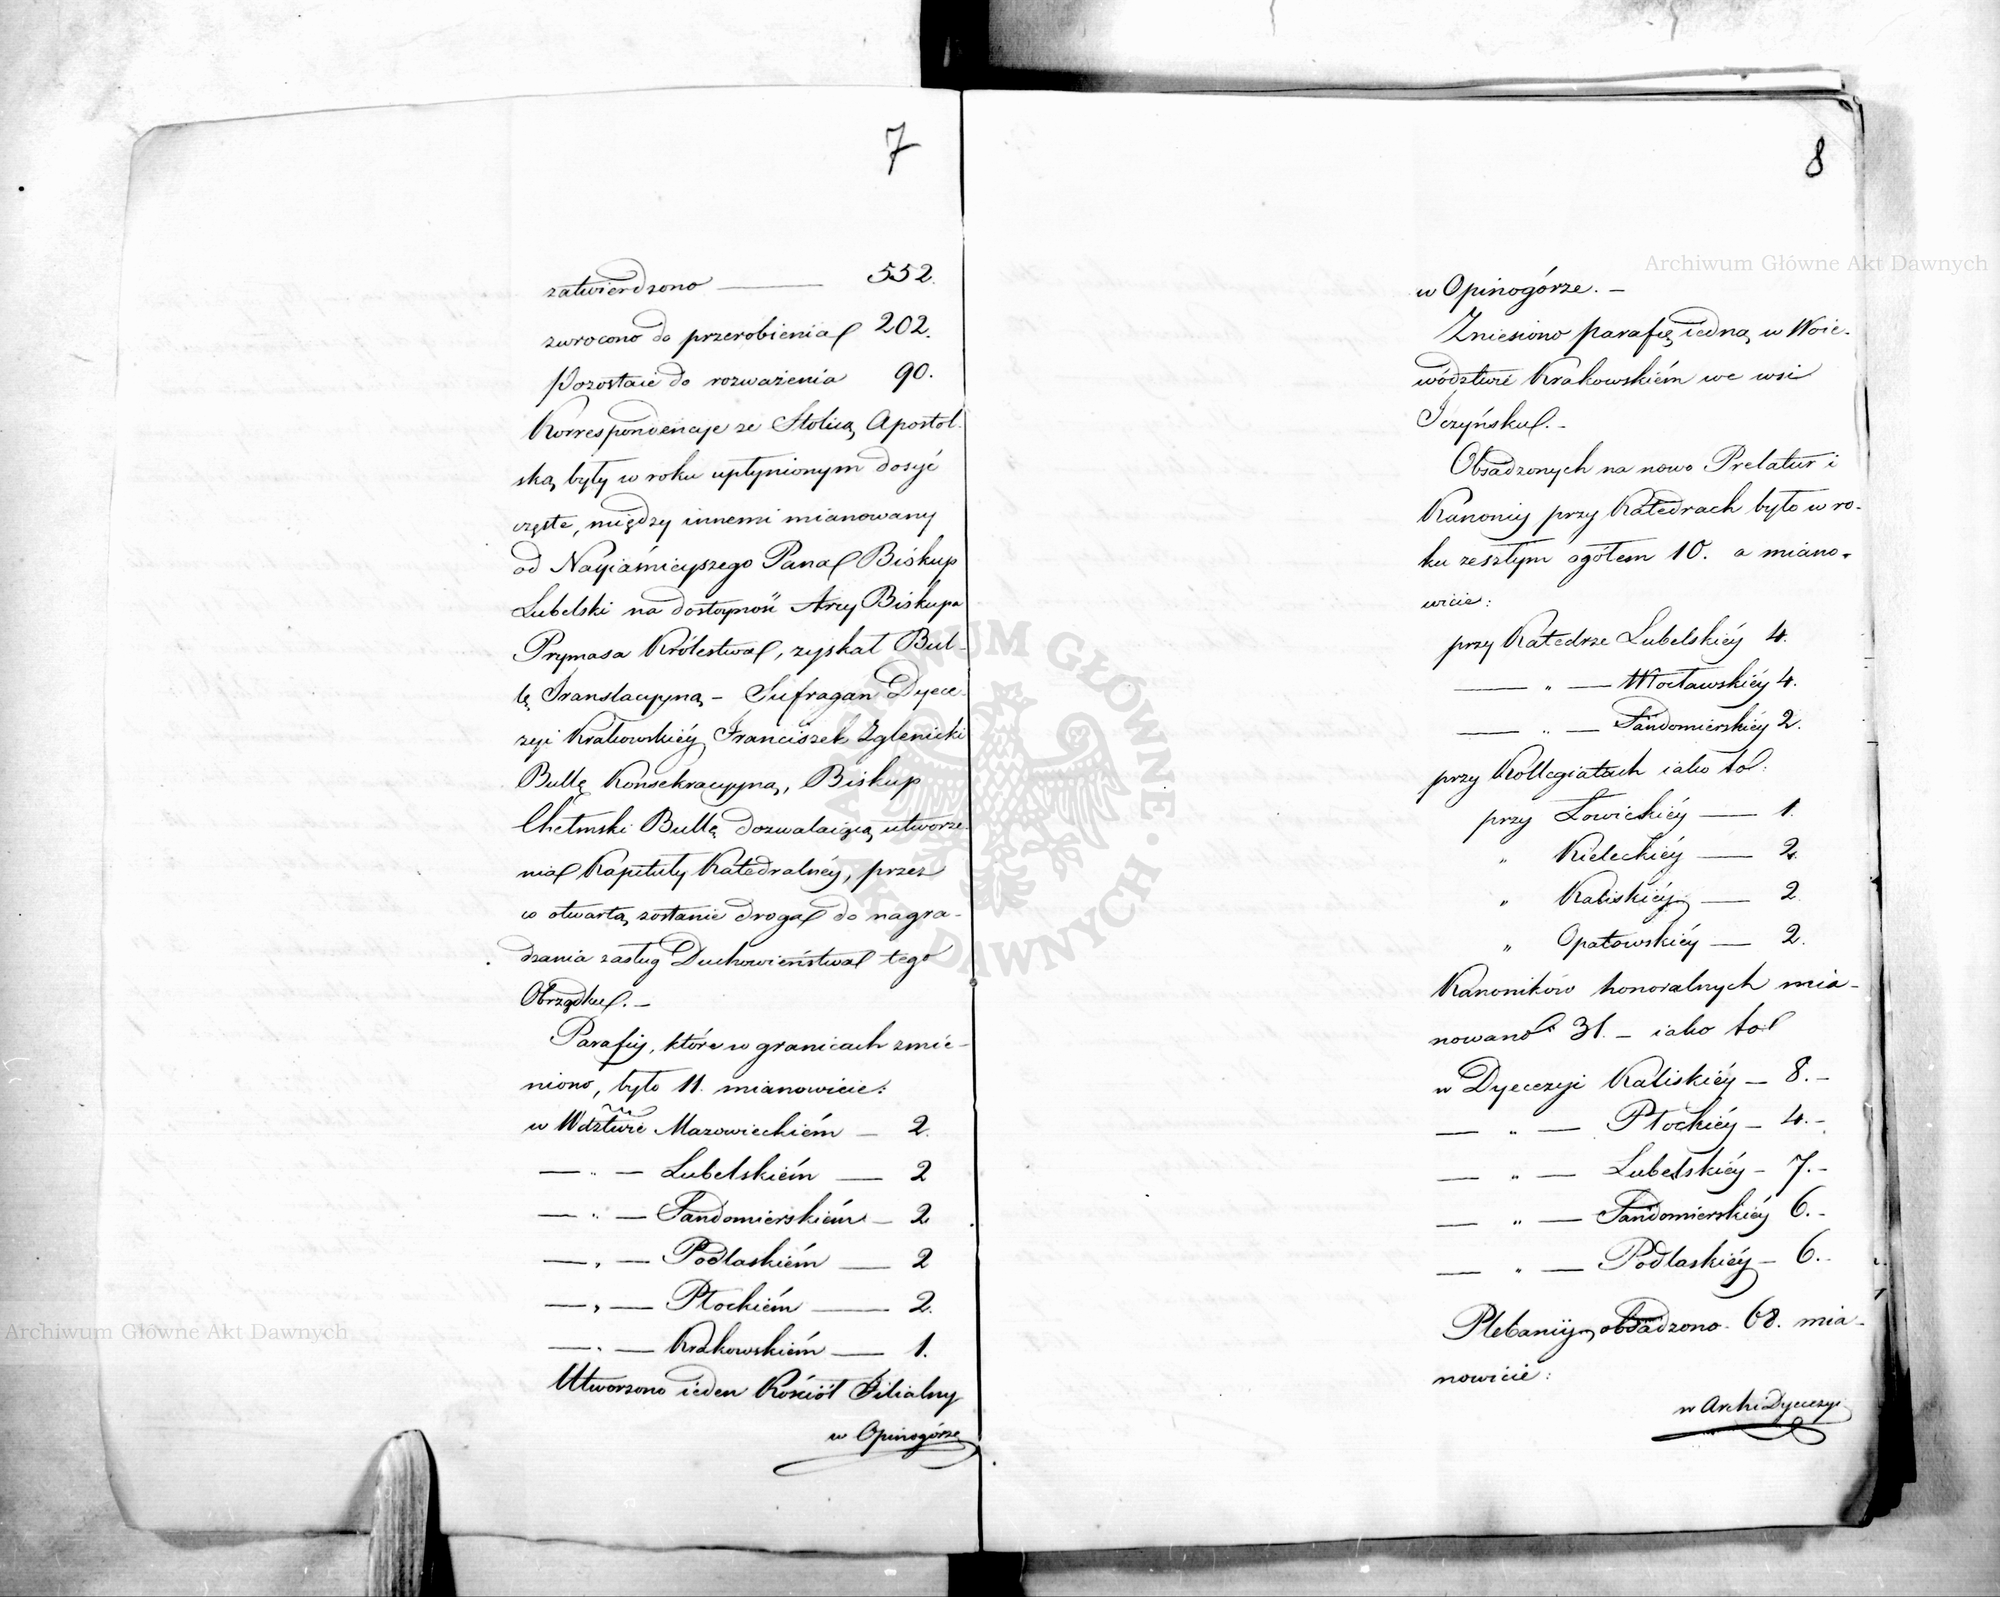 7
zatwierdzono — 552.
zwrocono do przerobienia 202.
Pozostaie do rozważenia 90.
Korrespondencye ze Stolicą Apostol-
ską były w roku upłynionym dosyć
częste, między innemi mianowany
od Nayiaśnieyszego Pana Biskup
Lubelski na dostoyność Arcy Biskupa
Prymasa Królestwa, zyskał Bul-
lę Translacyyną – Sufragan Dyece-
zyi Krakowskiéy Franciszek Zglenicki
Bullę Konsekracyyną, Biskup
Chełmski Bullę dozwalaiącą utworze-
nia Kapituły Katedralnéy, przez
co otwartą zostanie droga do nagra-
dzania zasług Duchowieństwa tego
Obrządku. –
Parafiy, które w granicach zmie-
niono, było 11. mianowicie:
w Wdztwie Mazowieckiém — 2.
— „ — Lubelskiém — 2
— „ — Sandomierskiém — 2
— „ — Podlaskiém — 2
— „ — Płockiém — 2.
— „ — Krakowskiém — 1.
Utworzono ieden Kościół Filialny
w Opinogórze
8
w Opinogórze. –
Zniesiono parafię iedną w Woie-
wództwie Krakowskiém we wsi
Tczyńsku. –
Obsadzonych na nowo Prelatur i
Kanoniy przy Katedrach było w ro-
ku zeszłym ogółem 10. a miano-
wicie:
przy Katedrze Lubelskiéy 4.
— „ — Włocławskiéy 4.
— „ — Sandomierskiéy 2.
przy Kollegiatach iako to:
przy Łowickiéy — 1.
„ Kieleckiéy — 2.
„ Kaliskiéy — 2
„ Opatowskiéy — 2.
Kanoników honoralnych mia-
nowano 31. – iako to
w Dyecezyi Kaliskiéy — 8. –
— „ — Płockiéy — 4. –
— „ — Lubelskiéy — 7. –
— „ — Sandomierskiéy 6. –
— „ — Podlaskiéy — 6. –
Plebaniy obsadzono 68. mia-
nowicie:
w ArchiDyecezyi
Archiwum Główne Akt Dawnych
Archiwum Główne Akt Dawnych
ARCHIWUM GŁÓWNE AKT DAWNYCH